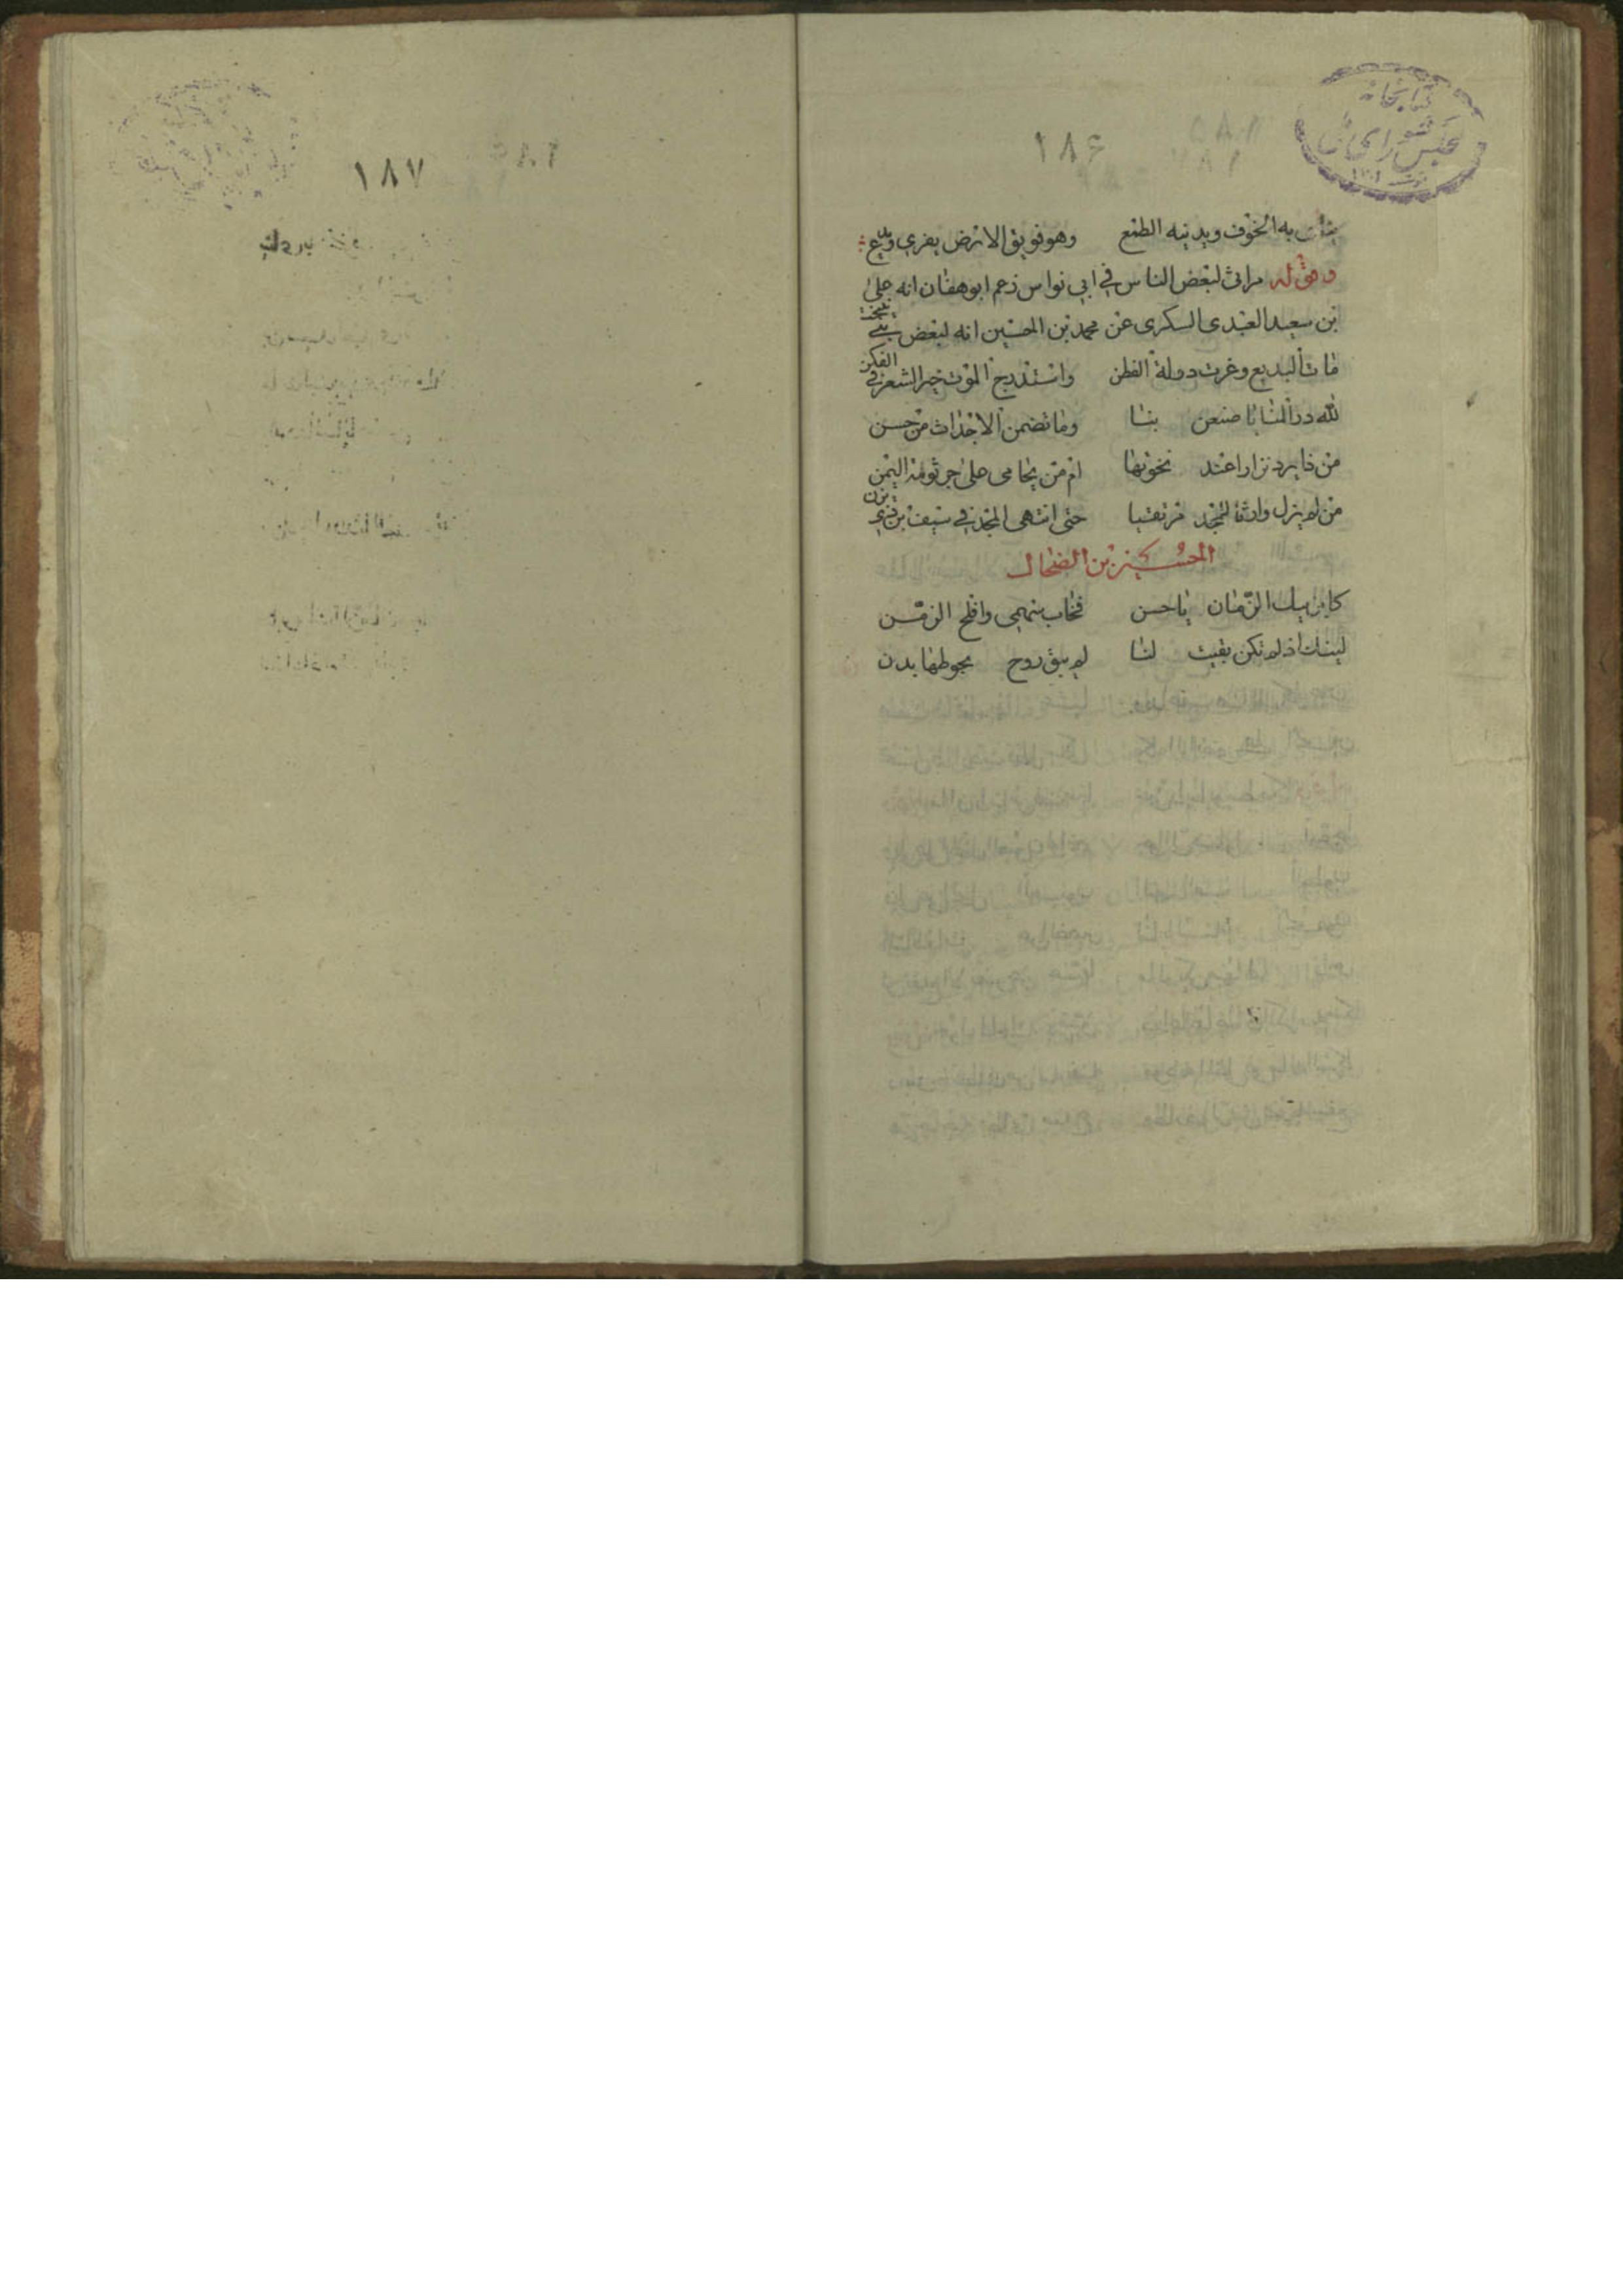 ۱۸۶
به الخوف ويدنيه الطمع وهو فويق الارض يفري ويدع
وقوله مراثى لبعض الناس في ابي نواس زعم ابو هفان انه على
بن سعيد العبدى السكرى عن محمد بن الحسين انه لبعض بني
مات البديع وغرت دولة الفطن واستدرج الموت خير الشعر في الفكن
لله در المنايا ما صنعن بنا وما تضمن الاجداث من حسن
من ذا يرد نزارا عند نخوتها ام من يحامى على جرثومة اليمن
من لم يزل وارثا للمجد مرتقبا حتى انتهى المجد في سيف بن ذي يزن
الحسين بن الضحاك
الزمان ياحسن فخاب سهمى وافلح الزمن
ليتك اذ لم تكن بقيت لنا لم يبق روح يحوطها بدن
۱۸۷
كتابخانه
مجلس شوراى ملى